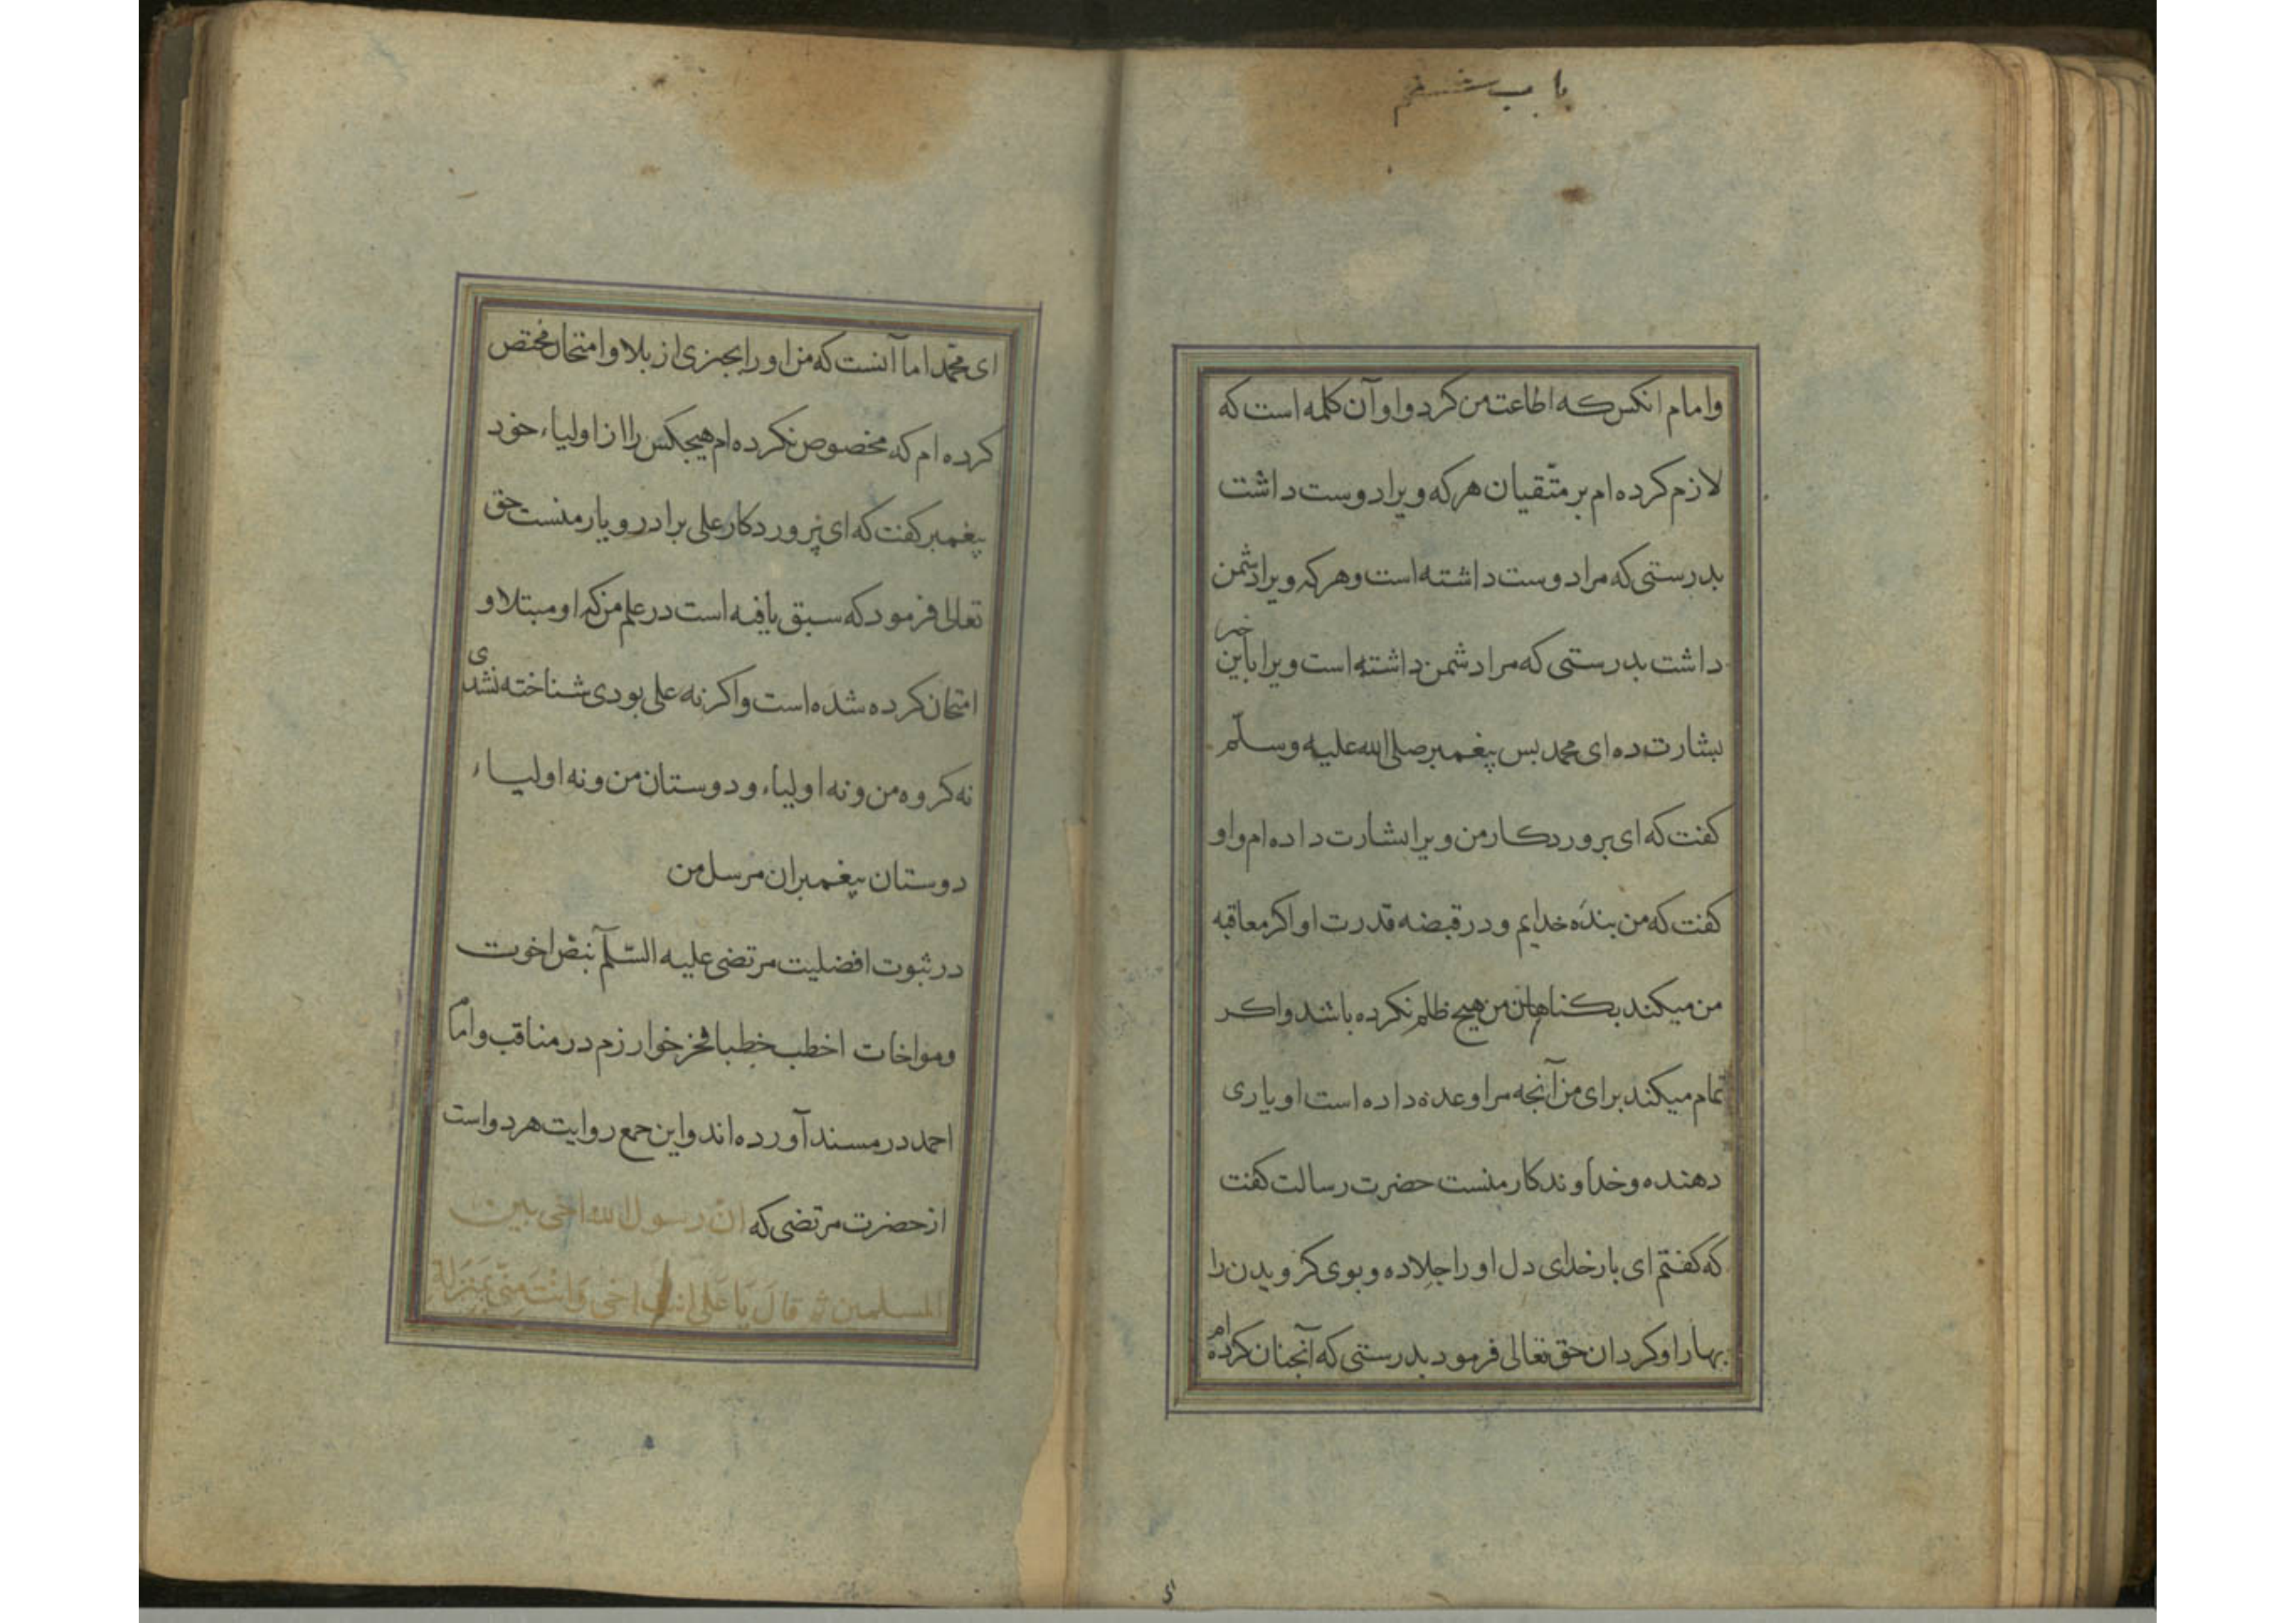 باب ششم
وامام انکس که اطاعت من کرد و او آن کلمه است که
لازم کرده ام بر متّقیان هر که ویرا دوست داشت
بدرستی که مرا دوست داشته است و هر که ویرا دشمن
داشت بدرستی که مرا دشمن داشته است ویرا باین خبر
بشارت ده ای محمد بس پیغمبر صلی الله علیه وسلّم
کفت که ای پروردکار من ویرا بشارت داده ام و او
کفت که من بندهٔ خدایم و در قبضه قدرت او اکر معاقبه
من میکند بکناهان من هیچ ظلم نکرده باشد و اکر
تمام میکند برای من آنجه مرا وعده داده است او یاری
دهنده و خداوندکار منست حضرت رسالت کفت
که کفتم ای بارخدای دل او را جلا ده و بوی کرویدن را
بهار او کردان حق تعالی فرمود بدرستی که آنجنان کرده ام
ای محمّد اما آنست که من او را بجیزی از بلا و امتحان مختص
کرده ام که مخصوص نکرده ام هیجکس را از اولیاء خود
پیغمبر کفت که ای پروردکار علی برادر و یار منست حق
تعالی فرمود که سبق یافته است در علم من که او مبتلا و
امتحان کرده شده است و اکر نه علی بودی شناخته نشدی
نه کروه من و نه اولیاء و دوستان من و نه اولیاء
دوستان پیغمبران مرسل من
در ثبوت افضلیت مرتضی علیه السّلم بنصّ اخوت
ومواخات اخطب خطبا فخر خوارزم در مناقب و امام
احمد در مسند آورده اند و این جمع روایت هر دو است
از حضرت مرتضی که انّ رسول الله اخی بین
المسلمین ثم قالَ یَا عَلی انت اخی وَانْتَ مِنّی بمَنزِلة